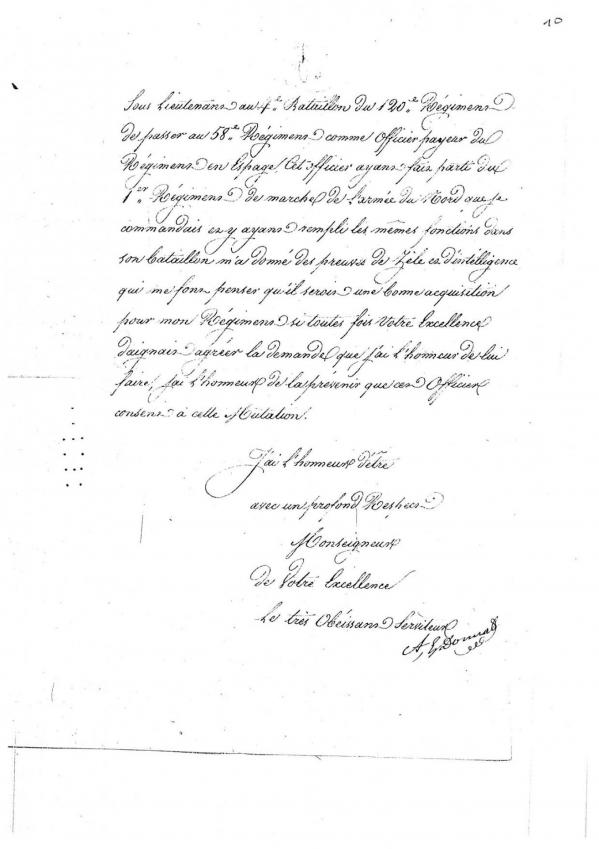 10
Sous Lieutenant au 4.e Bataillon du 120.e Régiment
de passer au 58.e Régiment comme Officier payeur du
Régiment en Espage, Cet officier ayant fait parti du
1.er Régiment de marche de l'armée du Nord que je
commandais et y ayant rempli les mêmes fonctions dans
son bataillon m'a donné des preuves de Zèle et d'intelligence
qui me font penser qu'il seroit une bonne acquisition
pour mon Régiment si toutes fois Votre Excellence
daignait agréer la demande que j'ai l'honneur de lui
faire, j'ai l'honneur de la prévenir que cet Officier
consent à cette Mutation.
J'ai l'honneur d'être
avec un profond Respect
Monseigneur
de Votre Excellence
Le très Obéissant Serviteur